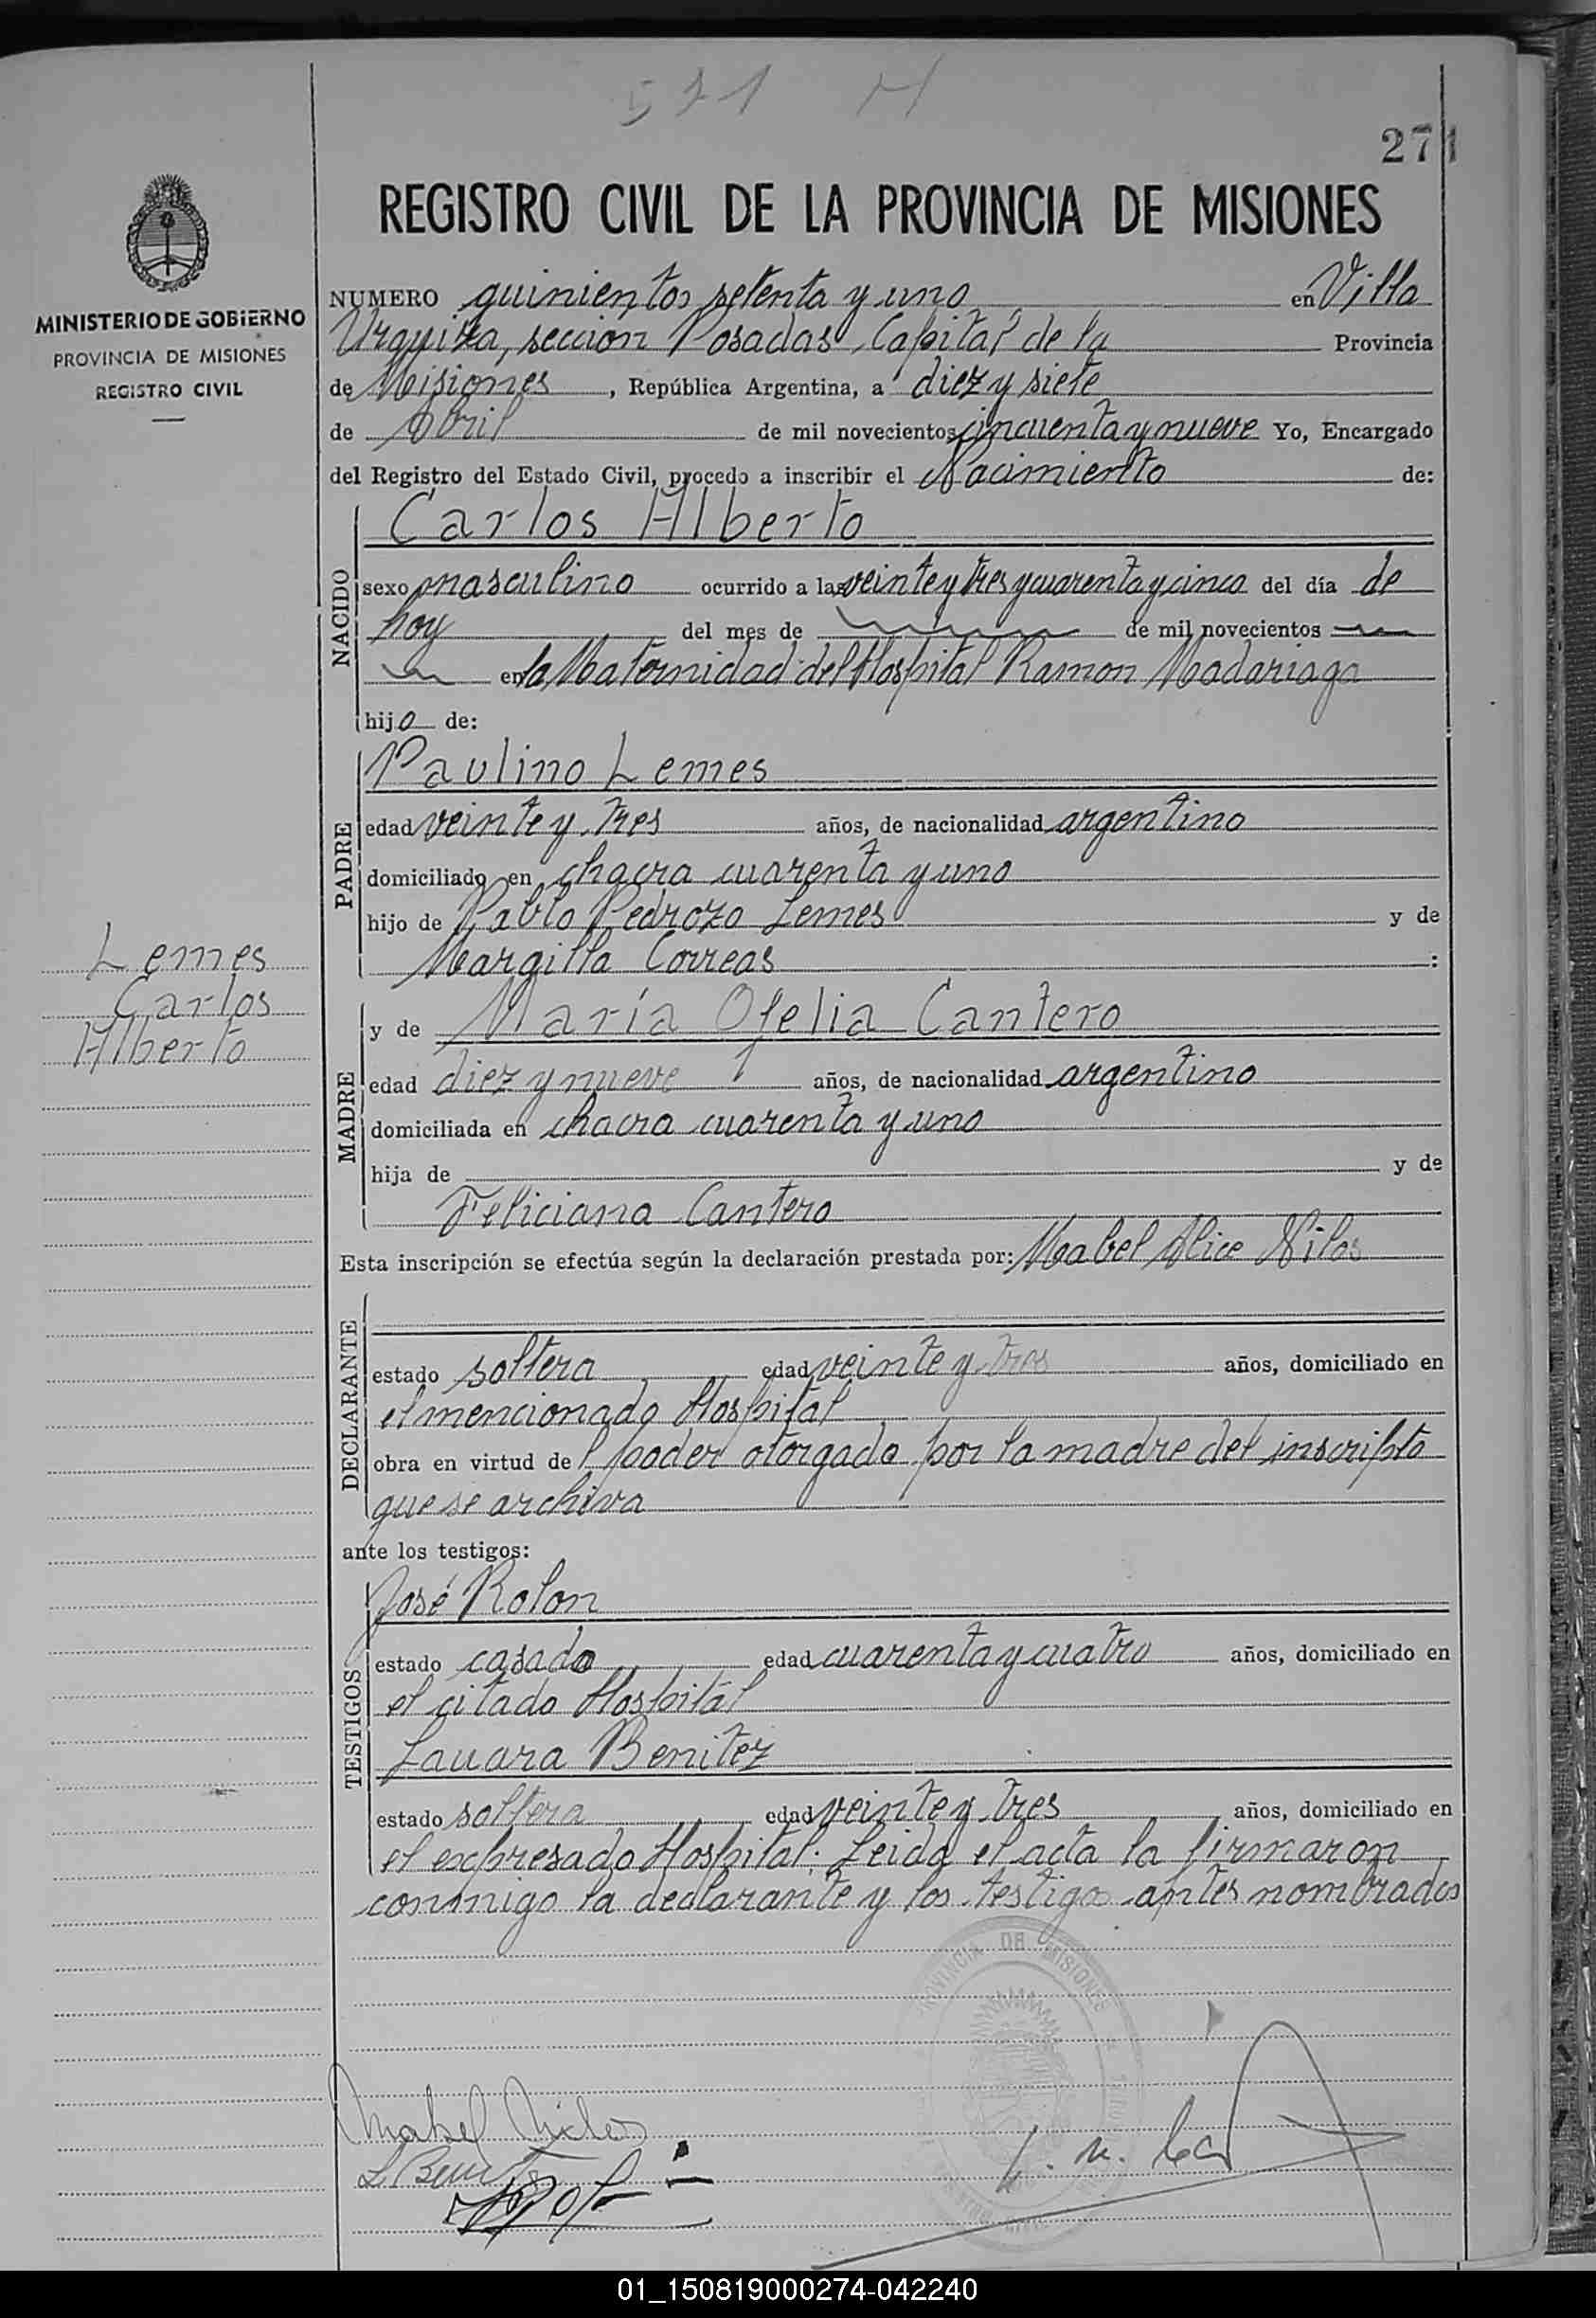 571 M
271
REGISTRO CIVIL DE LA PROVINCIA DE MISIONES
MINISTERIO DE GOBIERNO
PROVINCIA DE MISIONES
REGISTRO CIVIL
NUMERO quinientos setenta y uno en Villa
Urquiza, sección Posadas, Capital de la Provincia
de Misiones, República Argentina, a diez y siete
de Abril de mil novecientos cincuenta y nueve Yo, Encargado
del Registro del Estado Civil, procedo a inscribir el Nacimiento de:
NACIDO
Carlos Alberto
sexo masculino ocurrido a las veinte y tres y cuarenta y cinco del día de
hoy del mes de de mil novecientos
en la Maternidad del Hospital Ramon Madariaga
hijo de:
PADRE
Paulino Lemes
edad veinte y tres años, de nacionalidad argentino
domiciliado en chacra cuarenta y uno
hijo de Pablo Pedrozo Lemes y de
Margilla Correas :
Lemes
Carlos
Alberto
MADRE
y de María Ofelia Cantero
edad diez y nueve años, de nacionalidad argentino
domiciliada en chacra cuarenta y uno
hija de y de
Feliciana Cantero
Esta inscripción se efectúa según la declaración prestada por: Mabel Alice
DECLARANTE
estado soltera edad veinte y tres años, domiciliado en
el mencionado Hospital
obra en virtud del poder otorgado por la madre del inscripto
que se archiva
ante los testigos:
TESTIGOS
José Rolon
estado casado edad cuarenta y cuatro años, domiciliado en
el citado Hospital
Lauara Benitez
estado soltera edad veinte y tres años, domiciliado en
el expresado Hospital. Leida el acta la firmaron
conmigo la declarante y los testigos antes nombrados
PROVINCIA DE MISIONES
Mabel
L Benitez
01_150819000274-042240